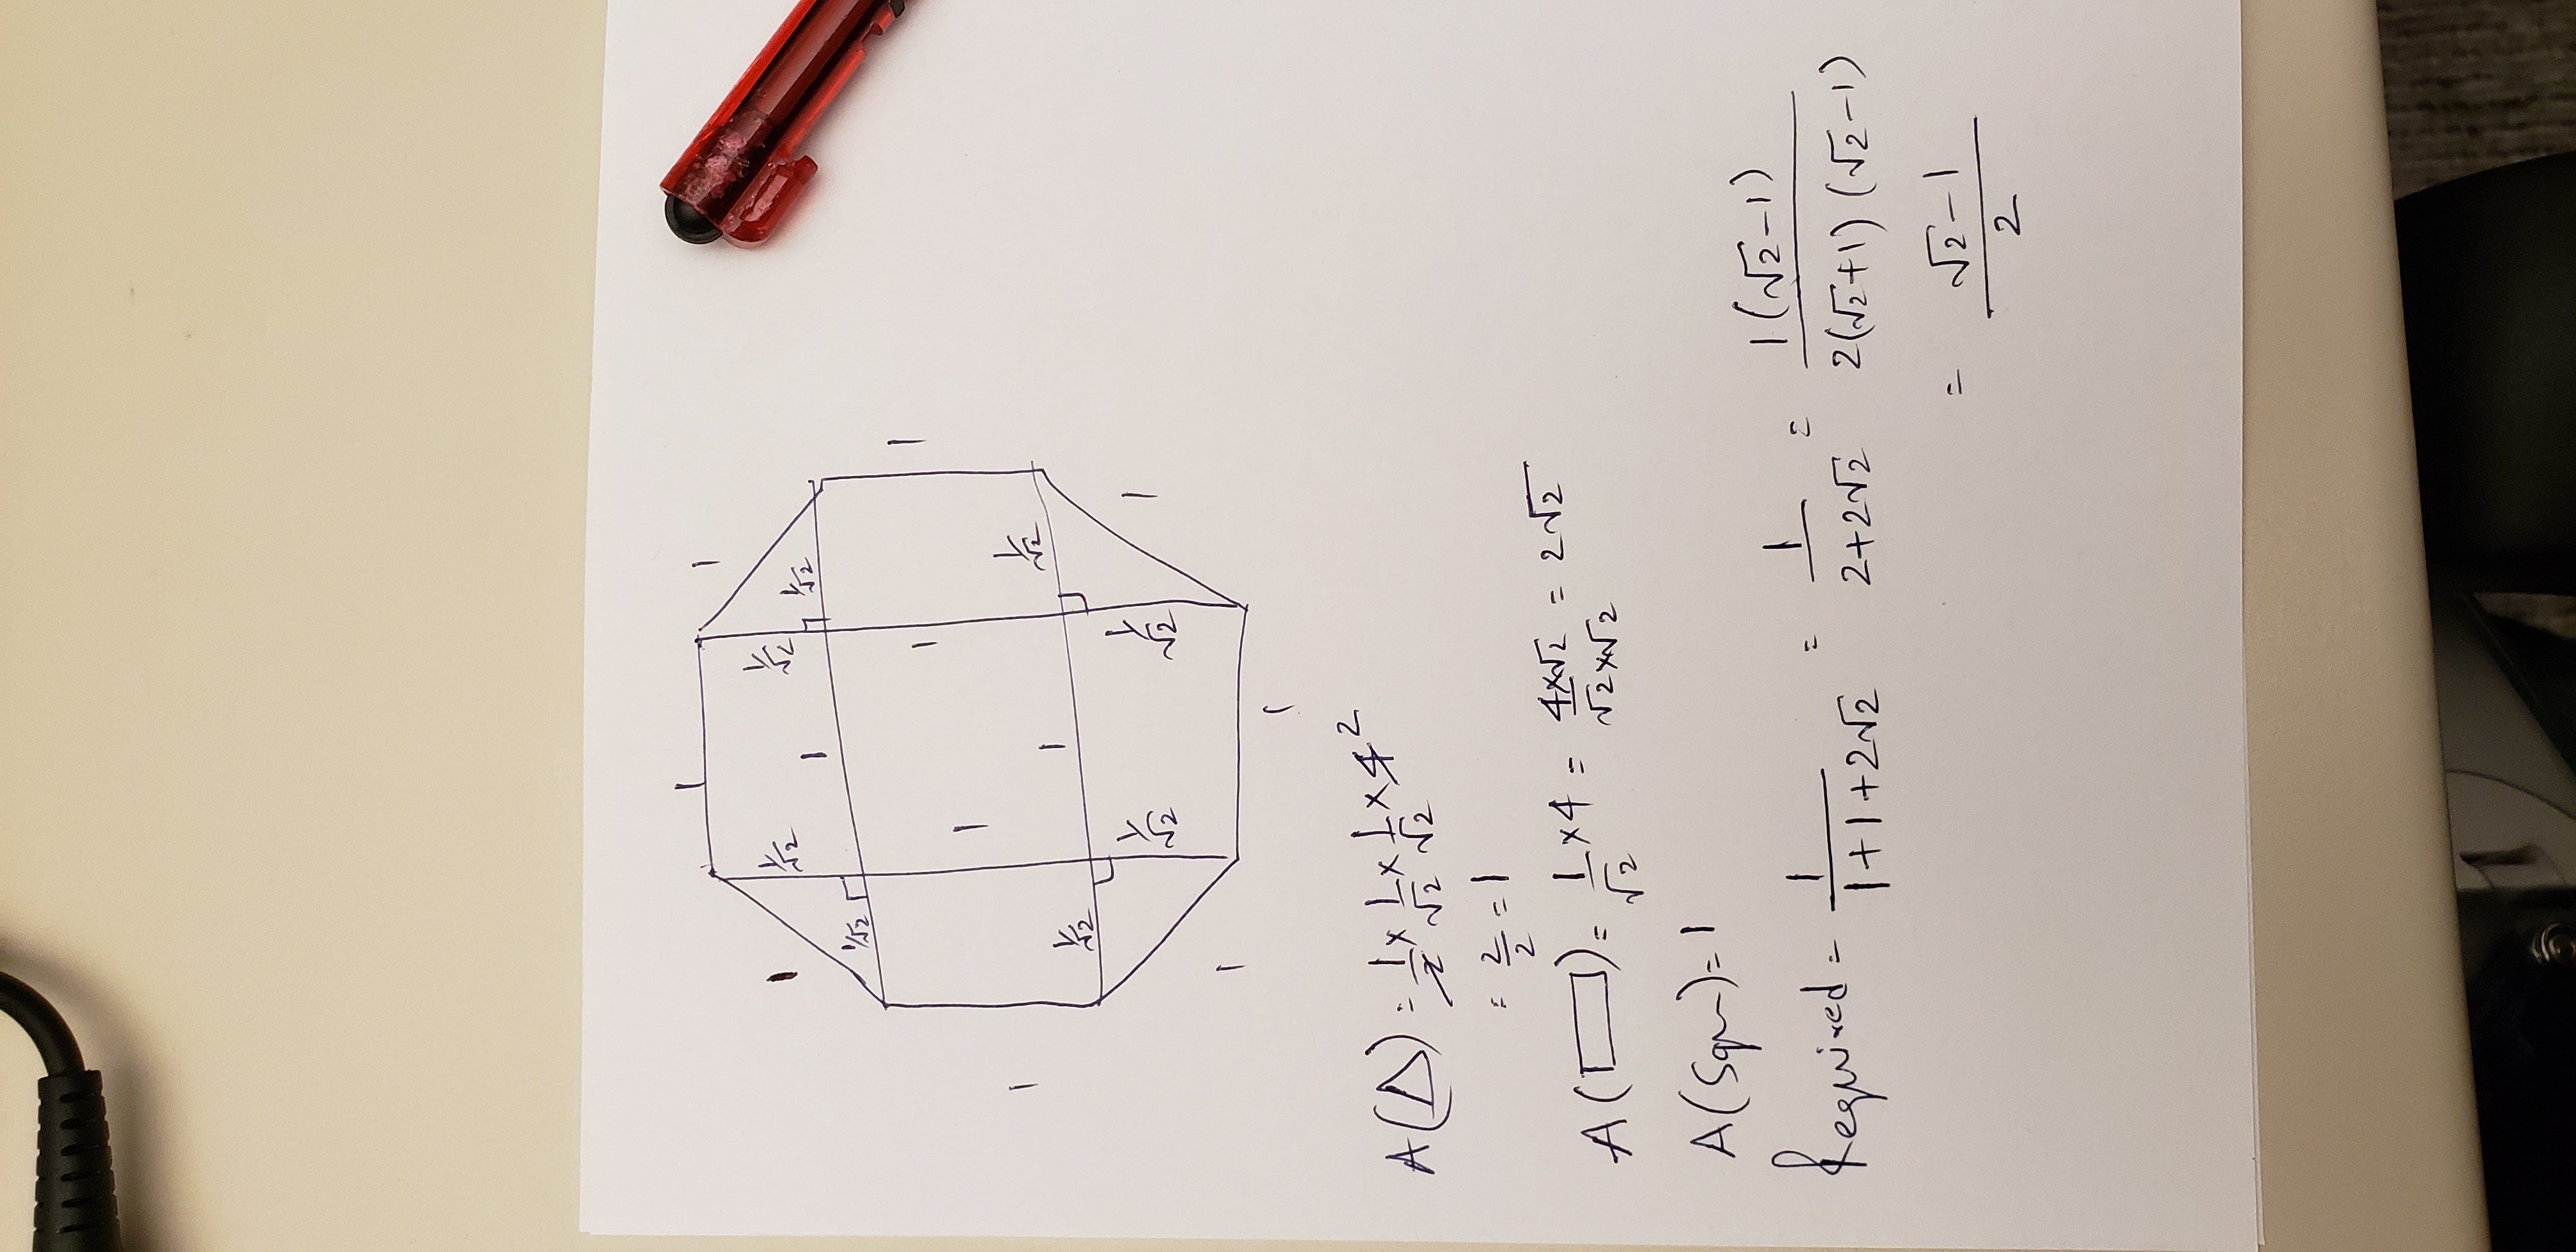 1
1 1
1/√2 1/√2
1/√2 1 1/√2
1 1
1/√2 1 1/√2
1/√2 1/√2
1 1
1
A(△) = 1/2 × 1/√2 × 1/√2 × 4 2
= 2/2 = 1
A(▭) = 1/√2 × 4 = 4×√2/√2×√2 = 2√2
A(Squr) = 1
Required = 1/1+1+2√2 = 1/2+2√2 = 1(√2-1)/2(√2+1)(√2-1)
= √2-1/2